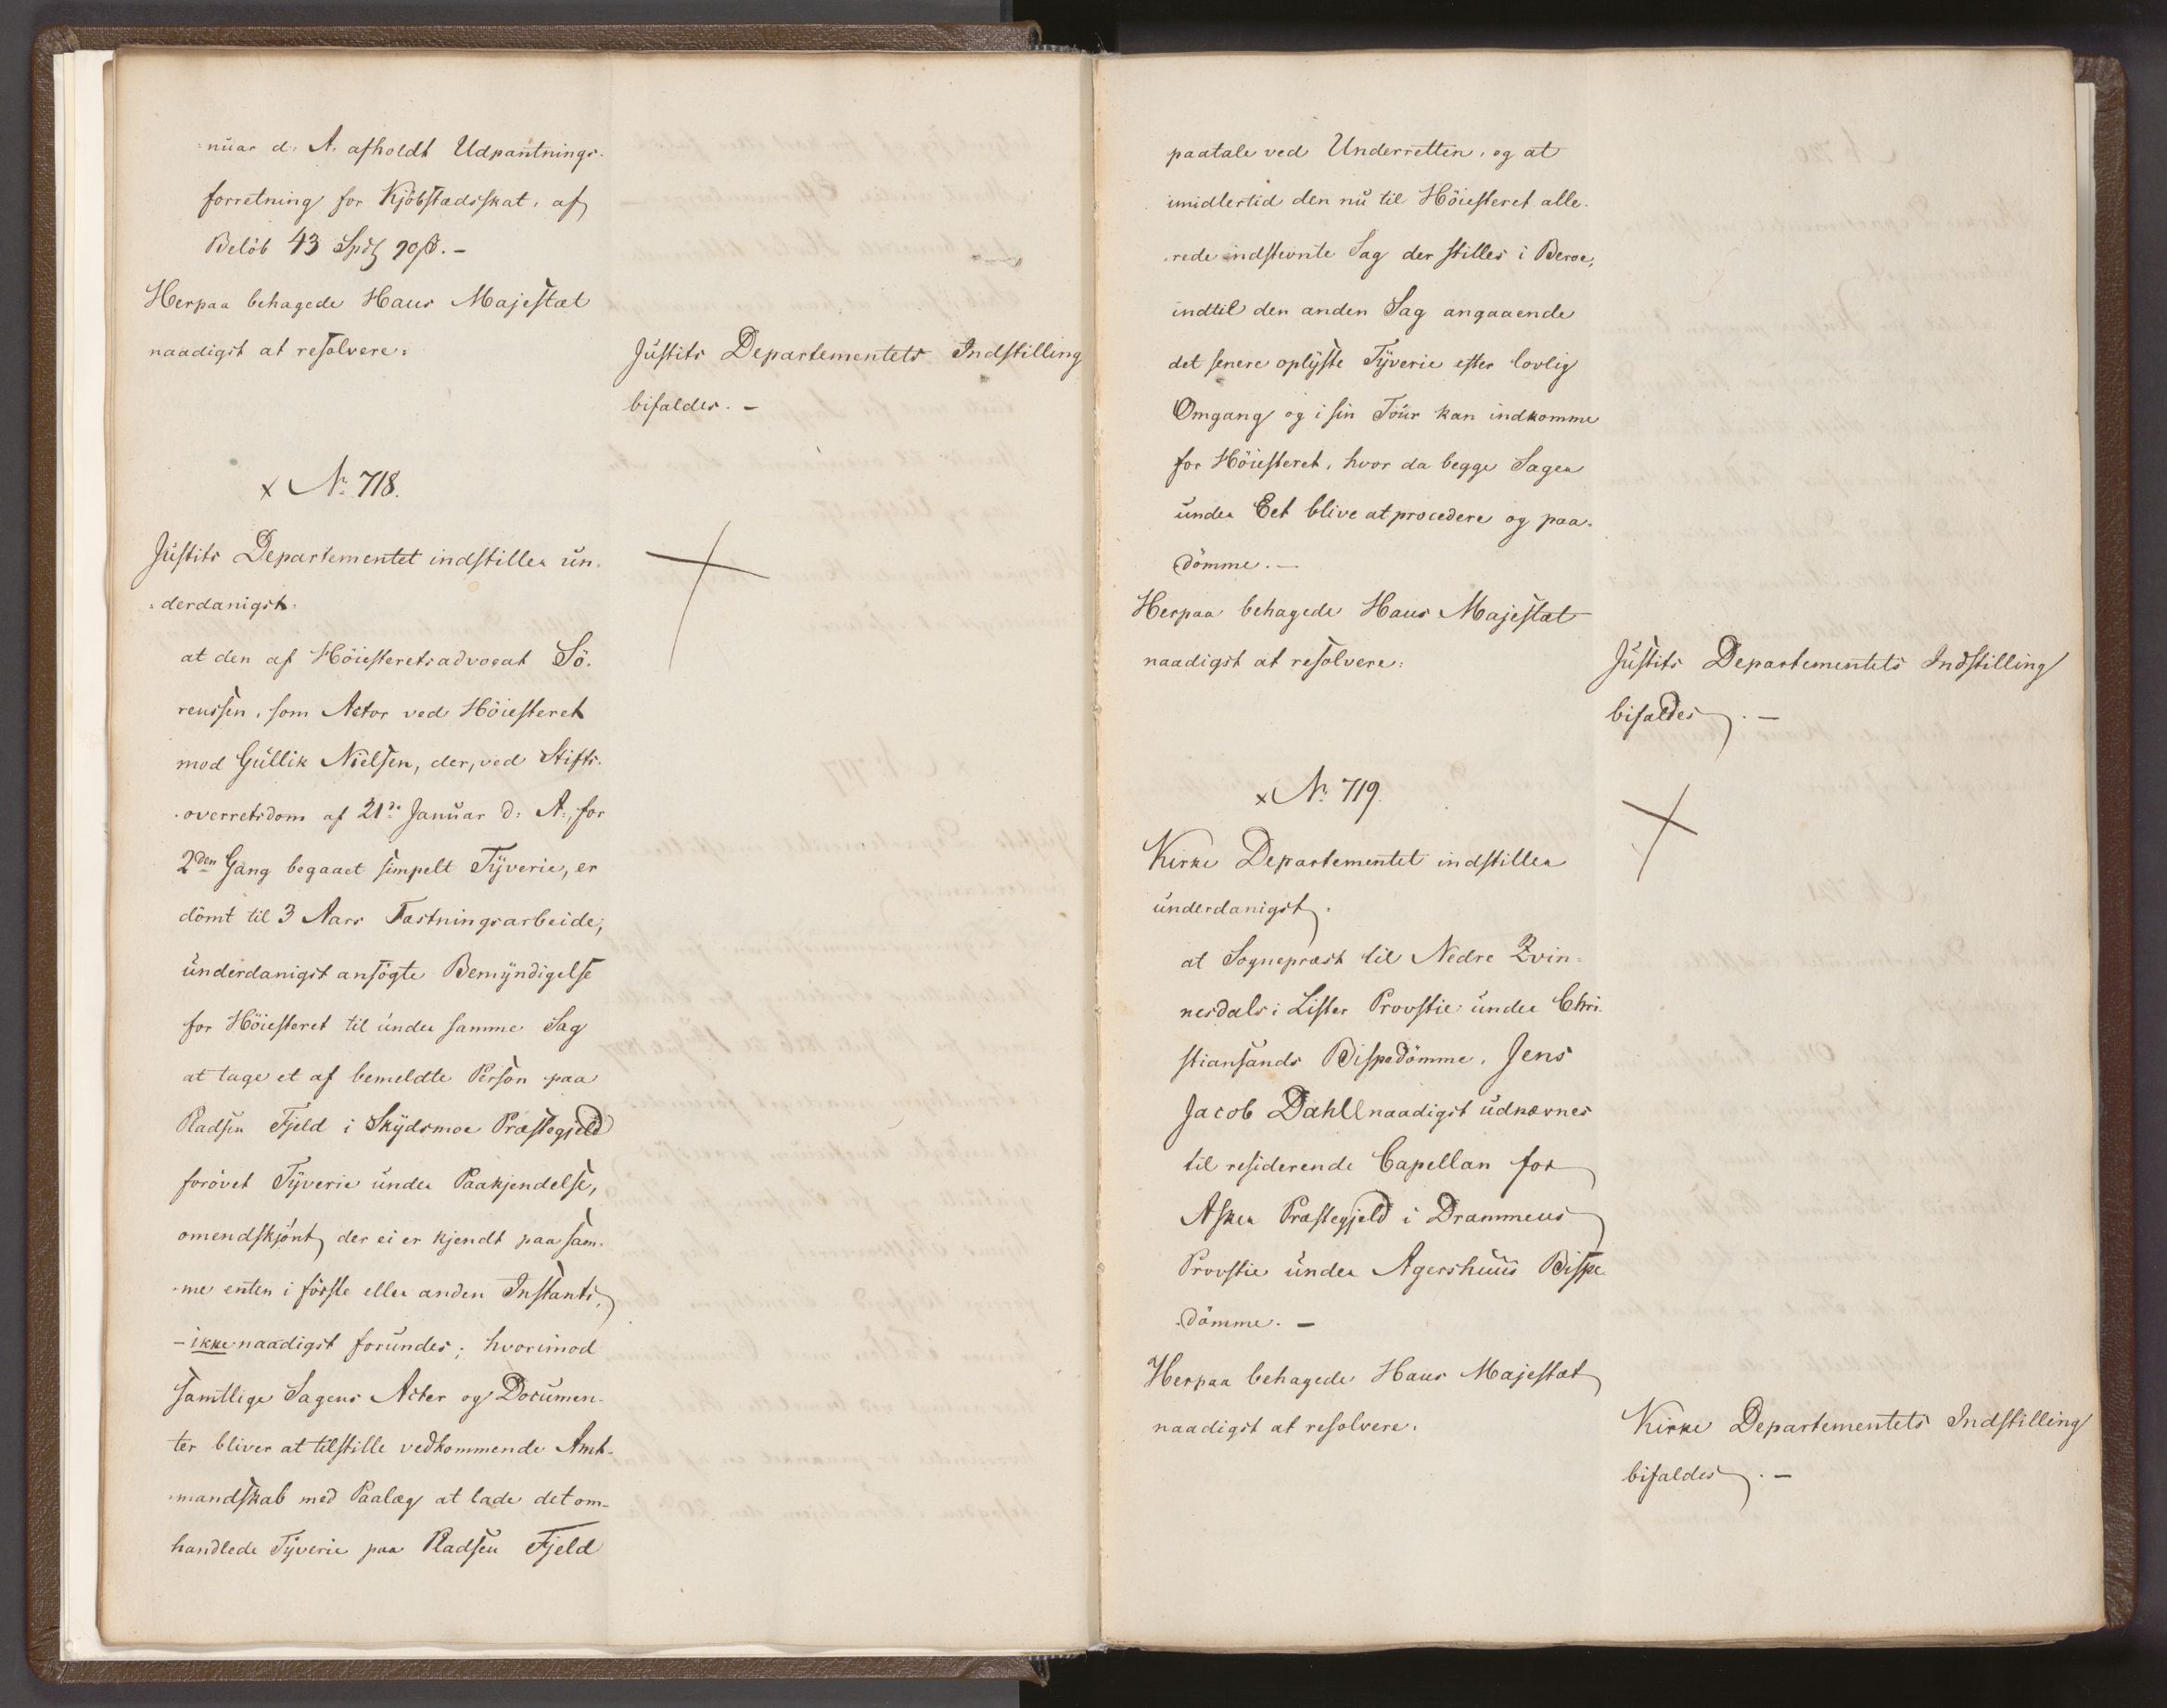 nuar d: A. afholdt Udpantnings-
forretning for Kjöbstædsskat, af
Belöb 43 Spd 90 ß. -
Herpaa behagede Hans Majestæt
naadigst at resolvere:
Justits Departementets Indstilling
bifaldes. -
x No 718.
Justits Departementet indstiller un-
derdanigst:
at den af Höiesteretsadvocat Sö-
renssen, som Actor ved Höiesteret
mod Gullik Nielsen, der, ved Stifts-
overretsdom af 21de Januar d: A:, for
2den Gang begaaet simpelt Tyverie, er
dömt til 3 Aars Fæstningsarbeide,
underdanigst ansögte Bemyndigelse
for Höiesteret til under samme Sag
at tage et af bemeldte Person paa
Pladsen Fjeld i Skydsmoe Præstegjeld
forövet Tyverie under Paakjendelse,
omendskjönt der ei er kjendt paa sam-
me enten i förste eller anden Instants,
- ikke naadigst forundes; hvorimod
samtlige Sagens Acter og Documen-
ter bliver at tilstille vedkommende Amt-
mandskab med Paalæg at lade det om-
handlede Tyverie paa Pladsen Fjeld
paatale ved Underretten, og at
imidlertid den nu til Höiesteret alle-
rede indstevnte Sag der stilles i Beroe,
indtil den anden Sag angaaende
det senere oplyste Tyverie efter lovlig
Omgang og i sin Tour kan indkomme
for Höiesteret, hvor da begge Sager
under Eet blive at procedere og paa-
dömme. -
Herpaa behagede Hans Majestæt
naadigst at resolvere:
Justits Departementets Indstilling
bifaldes. -
x No 719.
Kirke Departementet indstiller
underdanigst:
at Sognepræst til Nedre Qvin-
nesdals i Lister Provstie under Chri-
stiansands Bispedömme, Jens
Jacob Dahll naadigst udnævnes
til residerende Capellan for
Asker Præstegjeld i Drammens
Provstie under Agershuus Bispe-
dömme. -
Herpaa behagede Hans Majestæt
naadigst at resolvere:
Kirke Departementets Indstilling
bifaldes. -